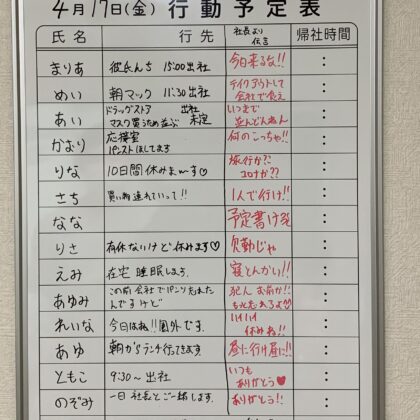 4月17日(金) 行動予定表
氏名 行先 社長より伝言 帰社時間
まりあ 彼氏んち 15:00出社 今日来るな!! :
めい 朝マック 11:30出社 テイクアウトして会社で食え :
あい ドラッグストア 出社
マスク買うため並ぶ 未定 いつまで並んどんねん :
かおり 応接室
パンストほしてます 何のこっちゃ!! :
りな 10日間休みまーす♡ 旅行か?? コロナか?? :
さち 買い物連れていって!! 1人で行け!! :
なな 予定書け :
りさ 有休ないけど休みます♡ 欠勤じゃ :
えみ 在宅 睡眠します。 寝とんかい!! :
あゆみ この前会社でパンツ忘れたんですけど 犯人お前か!! :
れいな 今日はね!!圏外です。 休みね!! :
あゆ 朝からランチ行ってきます。 昼に行け昼に!! :
ともこ 9:30〜出社 いつもありがとう♥ :
のぞみ 一日社長とご一緒します。 ありがとう!! :